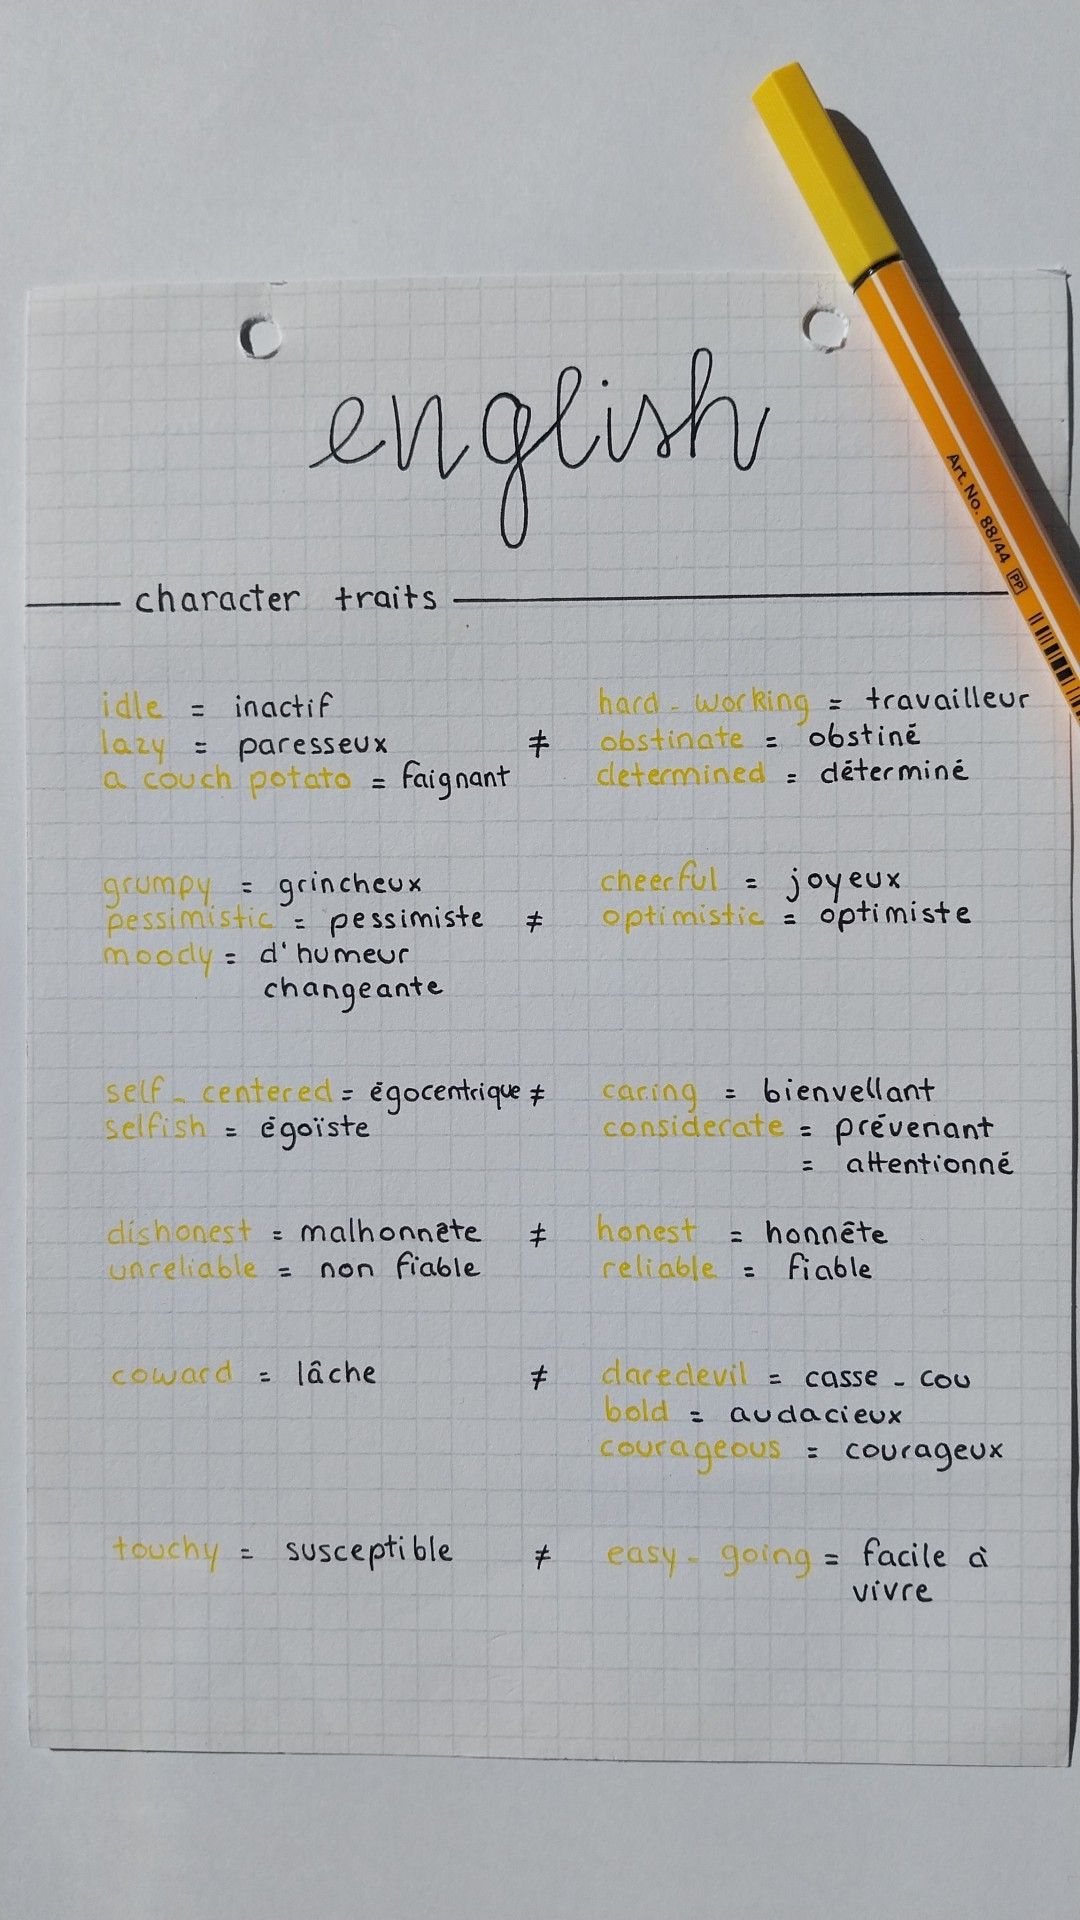 english
character traits
idle = inactif
lazy = paresseux ≠
a couch potato = faignant
hard-working = travailleur
obstinate = obstiné
determined = déterminé
grumpy = grincheux
pessimistic = pessimiste ≠
moody = d'humeur
changeante
cheerful = joyeux
optimistic = optimiste
self-centered = égocentrique ≠
selfish = égoïste
caring = bienvellant
considerate = prévenant
= attentionné
dishonest = malhonnête ≠
unreliable = non fiable
honest = honnête
reliable = fiable
coward = lâche ≠
daredevil = casse-cou
bold = audacieux
courageous = courageux
touchy = susceptible ≠
easy-going = facile à
vivre
Art. No. 88/44 PP